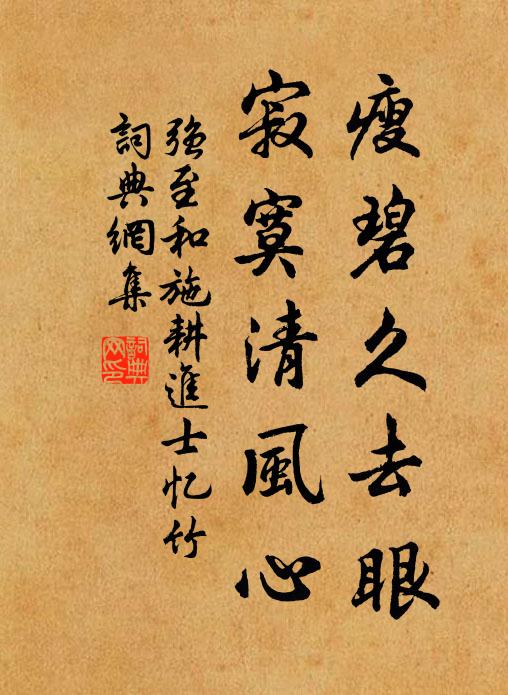 瘦碧久去眼
寂寞清風心
強至和施耕進士忆竹
詞典網集
詞典
网印